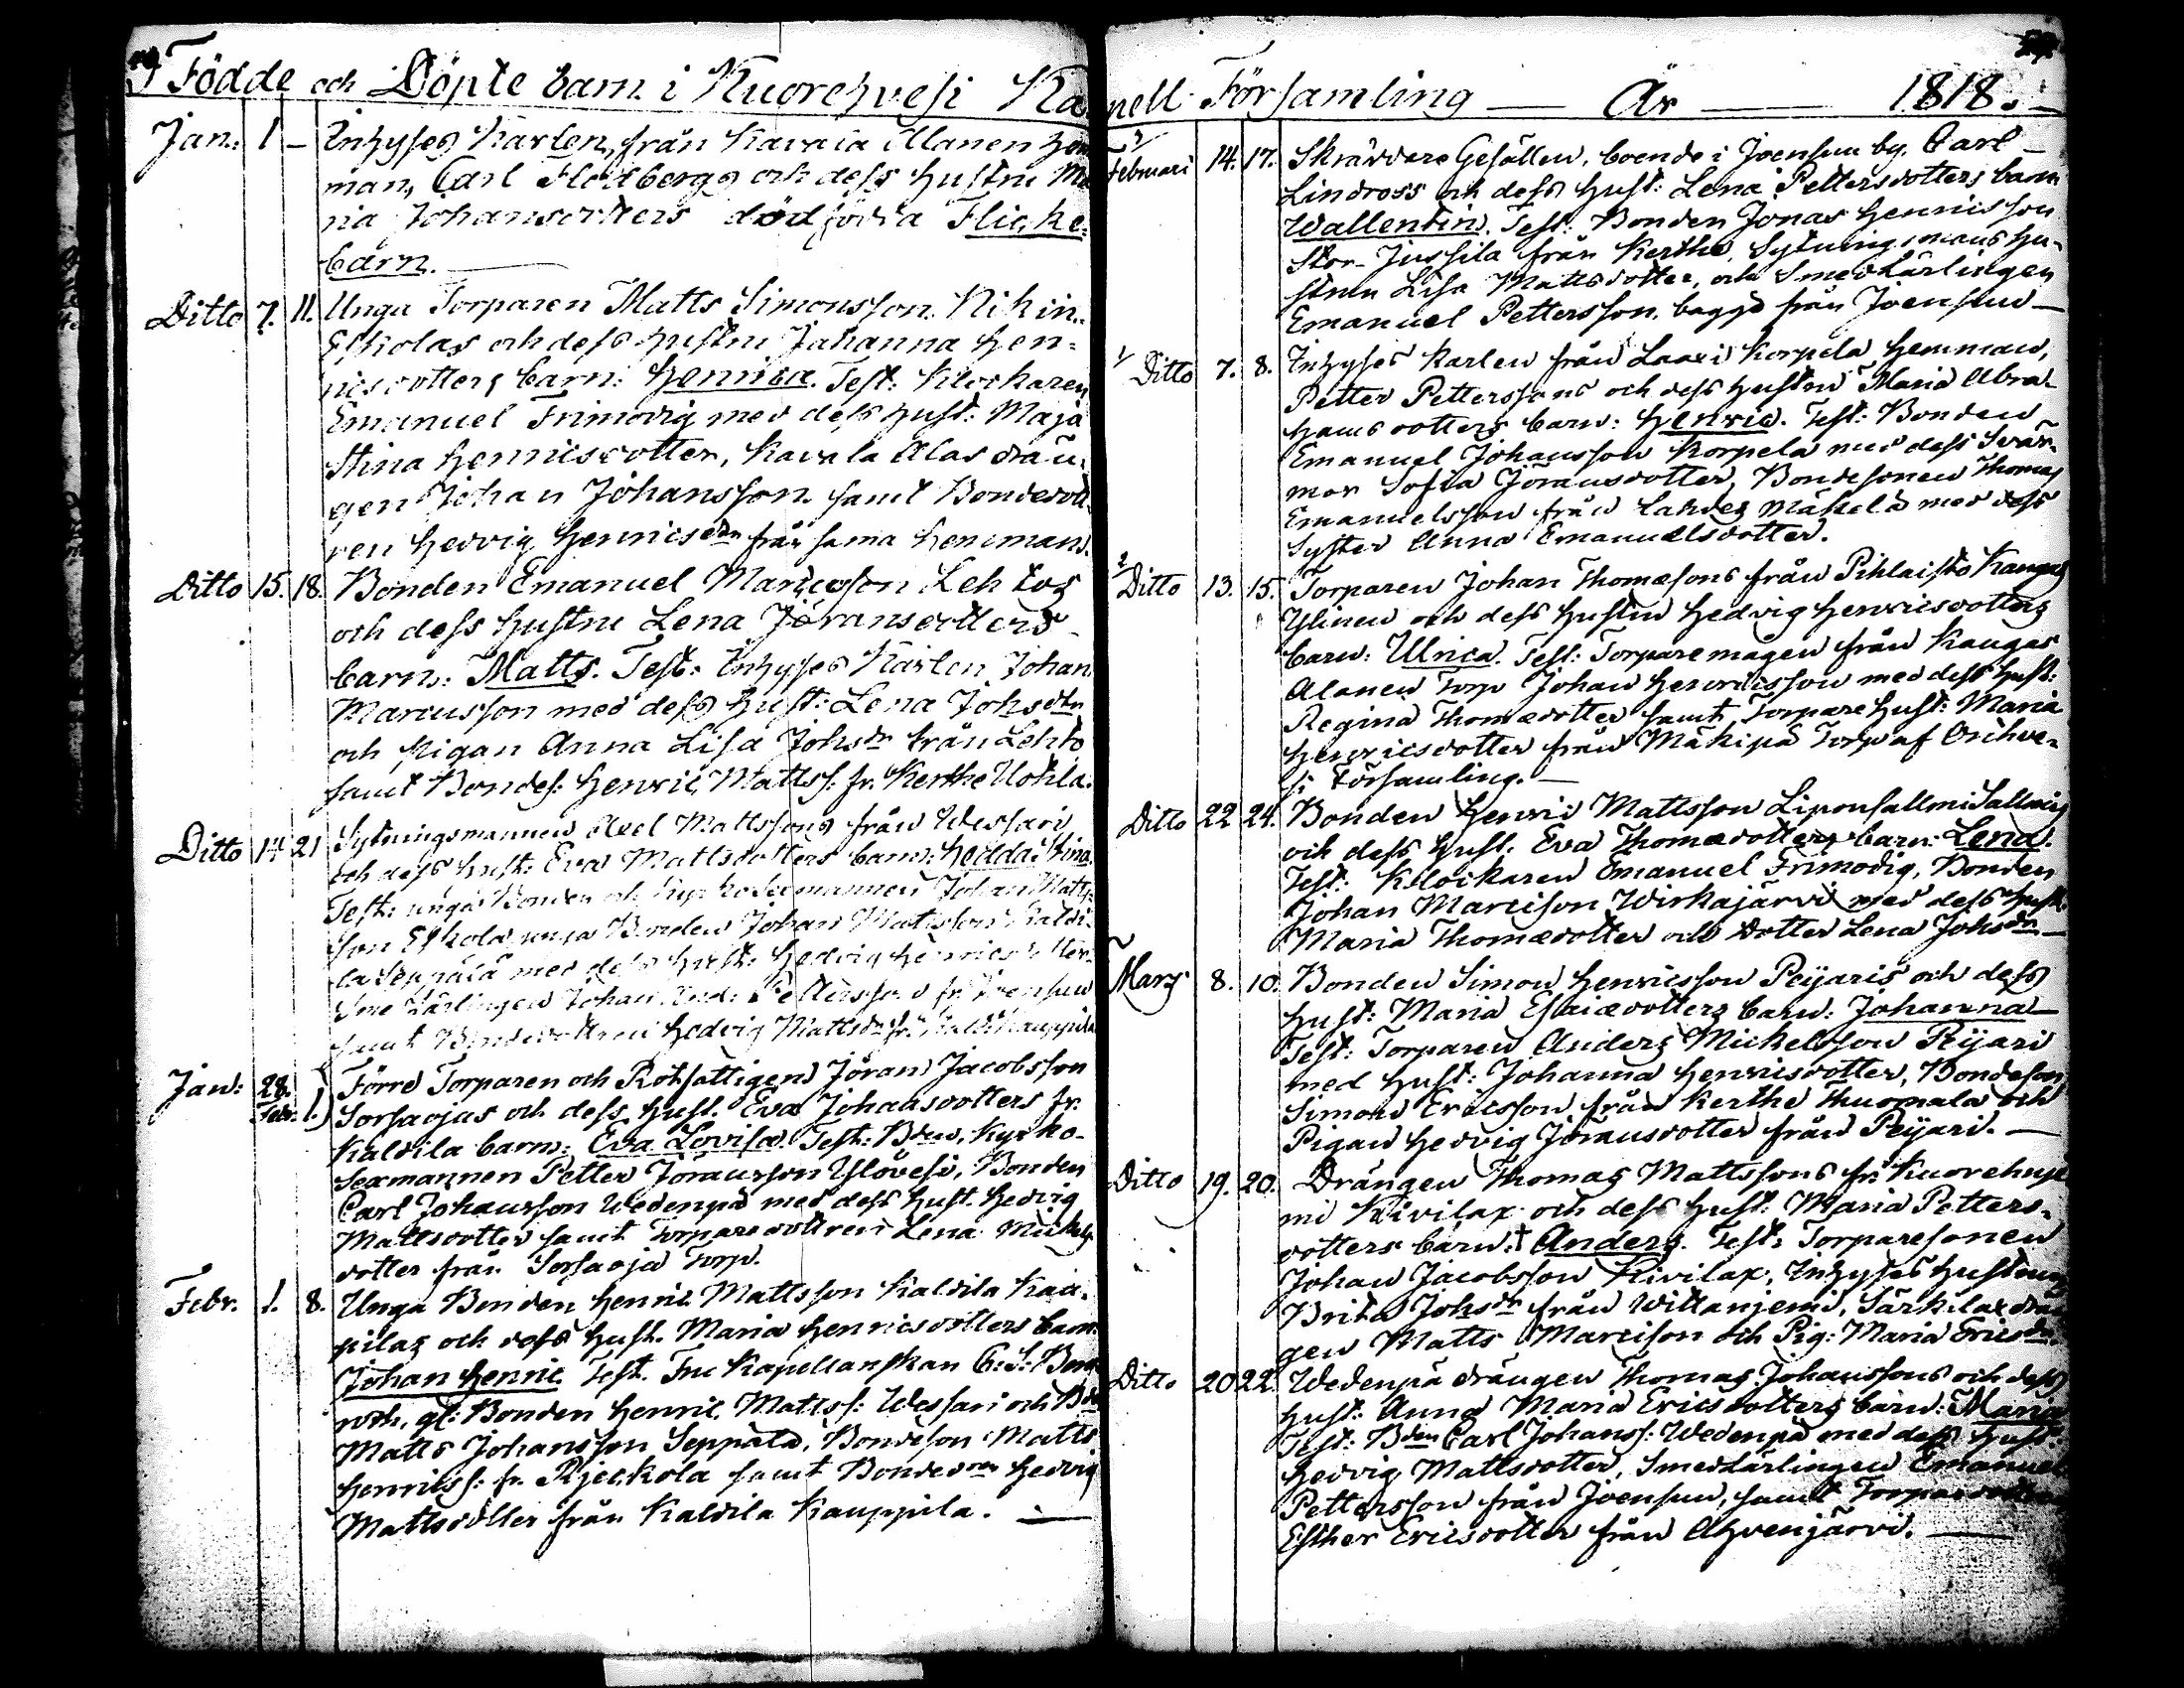 Födde och Döpte barn i Kuorehvesi Ka
Jan: 1 – Inhyses Karlen, från Kavala Alanen Hem
man, Carl Flodbergs och dess Hustru Ma
ria Johansdotters dödfödda Flicke
barn.
Ditto 7. 11. Unga Torparen Matts Simonsson Nikin
Eskolas och dess Hustru Johanna Hen-
ricsdotters barn: Henrica. Test: Klockaren
Emanuel Frimodig med dess Hust: Maja
Stina Henricsdotter, Kavala Alas drän-
gen Johan Johansson samt Bondedott
ren Hedvig Henricsdtr från sama Hemman.
Ditto 15. 18. Bonden Emanuel Marcusson Lehtos
och dess Hustru Lena Jöransdotters
barn: Matts. Test: Inhyses Karlen Johan
Marcusson med dess Hust: Lena Johsdtr
och Pigan Anna Lisa Johsdr från Lehto
samt Bondes: Henric Mattss: fr. Kerthe Uotila.
Ditto 14 21 Sytningsmannen Axel Mattssons från Wessari
och dess Hust: Eva Mattsdotters barn: Hedda Stina.
Test: unga Bonden och Kyrko Sexmannen Johan Matts
son Eskola, unga Bonden Johan Mattsson Kaldi-
la Seppälä med dess Hust: Hedvig Henricsdotter
Sme Lärlingen Johan Pettersson fr. Joensuu
samt Bondedottren Hedvig Mattsdr fr. Kaldila Kauppila
Jan: 28. Febr. 1. Förre Torparen och Rotfattigen Jöran Jacobsson
Sorsaojas och dess Hust. Eva Johansdotters fr.
Kaldila barn: Eva Lovisa. Test: Bden, Kyrko-
Sexmannen Petter Jöransson Ylövesi, Bonden
Carl Johansson Wedenpä med dess Hust. Hedvig
Mattsdotter samt Torparedottren Lena Mickels
dotter från Sorsaoja Torp.
Febr. 1. 8. Unga Bonden Henric Mattsson Kaldila Kau-
pilas och dess Hust. Maria Henricsdotters barn
Johan Henric. Test. Fru Kapellanskan C: S: Berg
roth, gl: Bonden Henric Mattss: Wessari och Bde
Matts Johansson Seppälä, Bondeson Matts
Henricss: fr. Rjeckola samt Bondedren Hedvig
Mattsdotter från Kaldila Kauppila. —
pell Församling — År — 1818. —
Februari 14. 17. Skräddare Gesällen, boende i Joensuu by, Carl
Lindross och dess Hust: Lena Pettersdotters barn
Wallentin. Test: Bonden Jonas Henricsson
Stor-Jussila från Kerthe, Sytningsmans Hu-
strun Lisa Mattsdotter, och Smedlärlingen
Emanuel Pettersson, bägge från Joensuu —
Ditto 7. 8. Inhyses Karlen från Laaxi Korpela Hemman,
Petter Petterssons och dess Hustru Maria Abra-
hamsdotters barn: Henric. Test: Bonden
Emanuel Johansson Korpela med dess Svär-
mor Sofia Jöransdotter, Bondesonen Thomas
Emanuelsson från Lahdes Mäkelä med dess
Syster Anna Emanuelsdotter.
Ditto 13. 15. Torparen Johan Thomæsons från Pihlaisto Kangas
Ylinen och dess Hustru Hedvig Henricsdotters
barn: Ulrica. Test: Torparemågen från Kangas
Alanen Torp Johan Henricsson med dess Hust:
Regina Thomædotter samt Torpare Hust: Maria
Henricsdotter från Mäkipä Torp af Orihve-
si Församling. —
Ditto 22 24. Bonden Henric Mattsson Liponsalmi Sallmis
och dess Hust. Eva Thomædotters barn: Lena.
Test: Klockaren Emanuel Frimodig, Bonden
Johan Marcison Wirkajärvi med dess Hust.
Maria Thomædotter och dotter Lena Johsdr —
Mars 8. 10. Bonden Simon Henricsson Peijaris och dess
Hust: Maria Esaiædotters barn: Johanna —
Test: Torparen Anders Mickelsson Peijari
med Hust: Johanna Henricsdotter, Bondeson
Simon Ericsson från Kerthe Thuomala och
Pigan Hedvig Jöransdotter från Peijari. —
Ditto 19. 20. Drängen Thomas Mattssons fr. Kuorehnie
mi Kivilax och dess Hust: Maria Petters-
dotters barn: † Anders. Test: Torparesonen
Johan Jacobsson Kivilax, Inhyses Hustrun
Brita Johsdr från Wittaniemi, Särkilax drän
gen Matts Marcison och Pig: Maria Ericsdr.
Ditto 20 22. Wedenpä drängen Thomas Johanssons och dess
Hust: Anna Maria Ericsdotters barn: Maria
Test: Bden Carl Johanss: Wedenpä med dess Hust:
Hedvig Mattsdotter, Smedlärlingen Emanuel
Pettersson från Joensuu, samt Torparedottren
Esther Ericsdotter från Ahvenjärvi. —